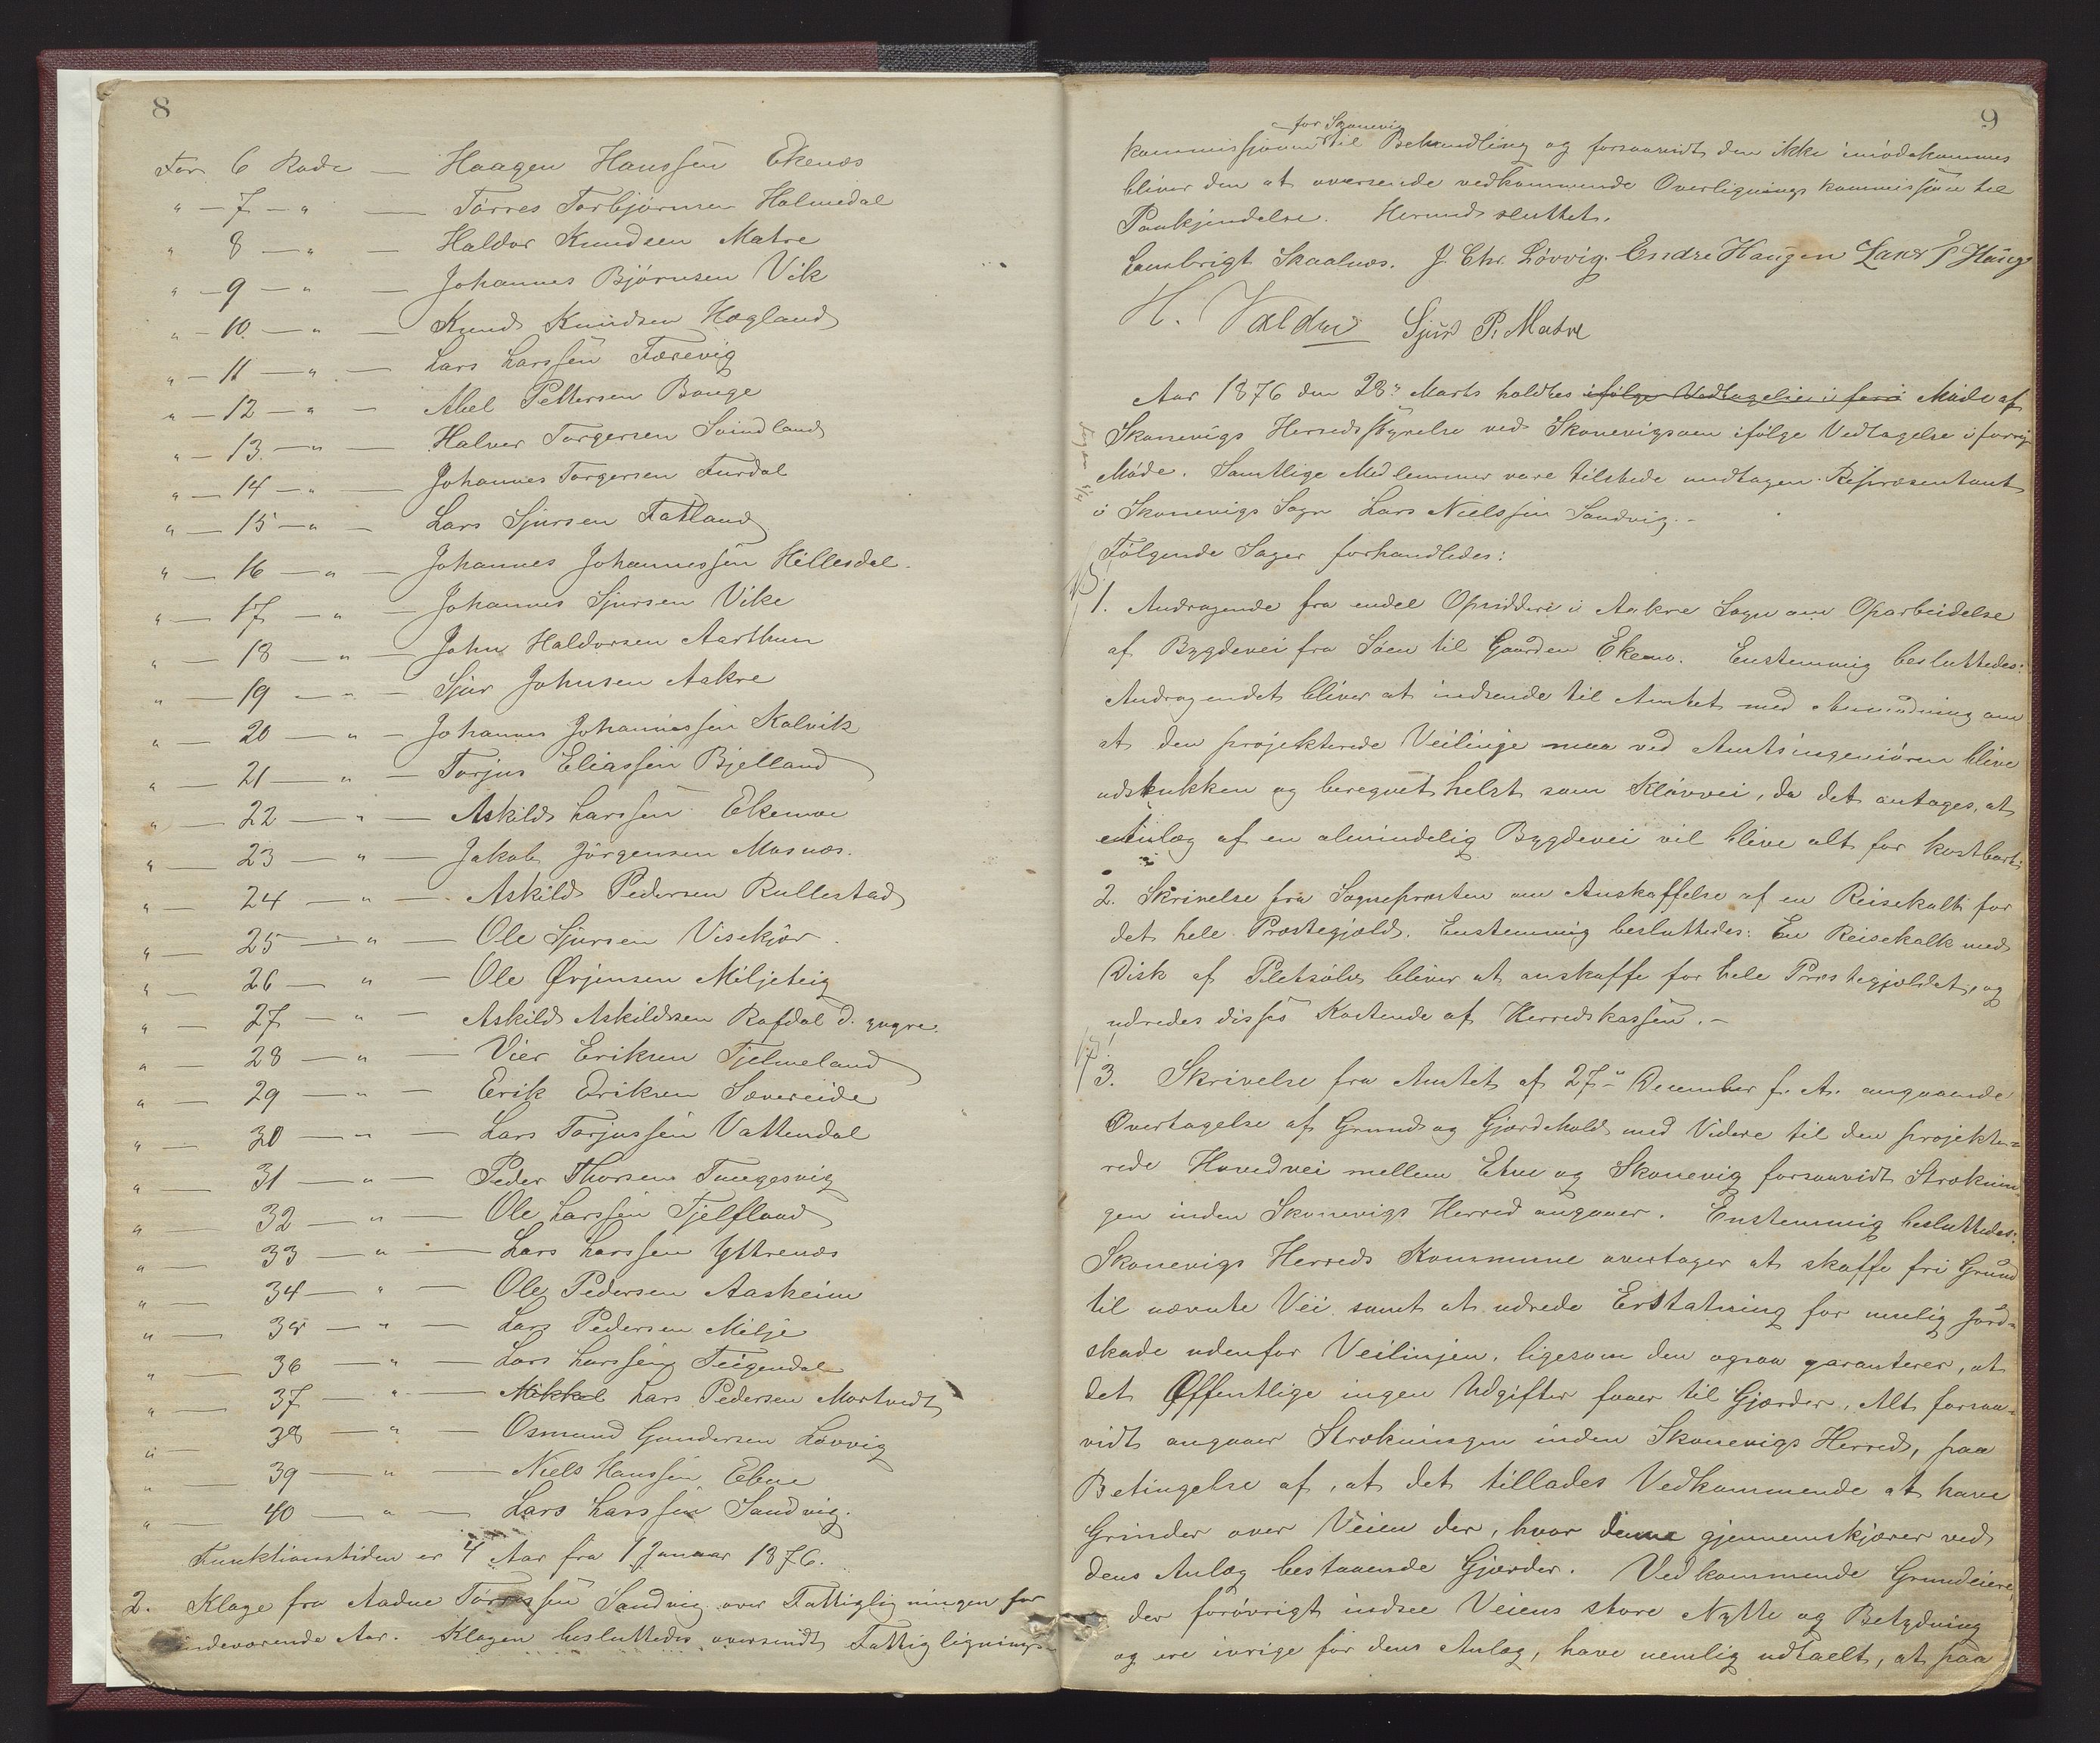 8
For 6 Rode — Haagen Hanssen Ekenæs
" — 7 — " — Tørres Torbjørnsen Holmedal
" 8 — " — Haldor Knudsen Matre
" — 9 — " — Johannes Bjørnsen Vik
" — 10 — " — Knud Knudsen Høgland
" — 11 — " — Lars Larssen Færevig
" — 12 — " — Abel Pettersen Bauge
" — 13 — " — Halvor Torgersen Svindland
" — 14 — " — Johannes Torgersen Furdal
" — 15 — " — Lars Sjursen Fatland
" — 16 — " — Johannes Johannessen Hillesdal.
" — 17 — " — Johannes Sjursen Vike
" — 18 — " — John Haldorsen Aarthun
" — 19 — " — Sjur Johnsen Aakre
" — 20 — " — Johannes Johannessen Kalvik
" — 21 — " — Torjus Eliassen Bjelland
" — 22 — " — Askild Larssen Ekemoe
" — 23 — " — Jakob Jørgensen Mosnæs.
" — 24 — " — Askild Pedersen Rullestad
" — 25 — " — Ole Sjursen Visekjør.
" — 26 — " — Ole Ørjensen Miljeteig
" — 27 — " — Askild Askildsen Rafdal d. yngre.
" — 28 — " — Vier Eriksen Tjelmeland
" — 29 — " — Erik Eriksen Sævereide
" — 30 — " — Lars Torjussen Vattendal
" — 31 — " — Peder Thorsen Tungesvig
" — 32 — " — Ole Larssen Fjelflaad
" — 33 — " — Lars Larssen Yttrenæs
" — 34 — " — Ole Pedersen Aasheim
" — 35 — " — Lars Pedersen Milje
" — 36 — " — Lars Larssen Teigendal
" — 37 — " — Mikkel Lars Pedersen Mortvedt
" — 38 — " — Osmund Gundersen Løvvig
" — 39 — " — Niels Hanssen Ebne
" — 40 — " — Lars Larssen Sandvig.
Funktionstiden er 4 Aar fra 1 Januar 1876.
2. Klage fra Aadne Tørressen Sandvig over Fattigligningen for
indeværende Aar. Klagen besluttedes oversendt Fattiglignings-
9
for Skonevig
kommissionen til Behandling og forsaavidt den ikke imødekommes
bliver den at oversende vedkommende Overlignings kommission til
Paakjendelse. Hermed sluttet.
Lambrigt Skaalnæs. J. Chr. Løvvig. Endre Haugen Lars P Hauge
H. Valdre Sjur P. Matre
Aar 1876 den 28de Marts holdtes ifølge Vedtagelse i forri Møde af
Skonevigs Herredsstyrelse ved Skonevigsøen ifølge Vedtagelse i forrige
Møde. Samtlige Medlemmer vare tilstede undtagen Repræsentant
i Skonevigs Sogn Lars Nielssen Sandvig.-
Følgende Sager forhandledes:
1. Andragende fra endel Opsiddere i Aakre Sogn om Oparbeidelse
af Bygdevei fra Søen til Gaarden Ekemo. Enstemmig besluttedes:
Andragendet bliver at indsende til Amtet med Anmodning om
at den projekterede Veilinje maa ved Amtsingeniøren blive
udstukken og beregnet helst som Kløvvei, da det antages, at
Anlæg af en almindelig Bygdevei vil blive alt for kostbart.
2. Skrivelse fra Sognepræsten om Anskaffelse af en Reisekalk for
det hele Præstegjæld. Enstemmig besluttedes: En Reisekalk med
Disk af Pletsølv bliver at anskaffe for hele Præstegjældet, og
udredes disses Kostende af Herredskassen.-
3. Skrivelse fra Amtet af 27de December f. A. angaaende
Overtagelse af Grund og Gjærdehold med Videre til den projekte-
rede Hovedvei mellem Etne og Skonevig forsaavidt Veistræknin-
gen inden Skonevigs Herred angaaer. Enstemmig besluttedes:
Skonevigs Herreds Kommune overtager at skaffe fri Grund
til nævnte Vei samt at udrede Erstatning for mulig Jord-
skade udenfor Veilinjen, ligesom den ogsaa garanterer, at
det Offentlige ingen Udgifter faaer til Gjærder, Alt forsaa-
vidt angaaer Strækningen inden Skonevigs Herred, paa
Betingelse af, at det tillades Vedkommende at have
Grinder over Veien der, hvor denne gjennemskjærer ved
dens Anlæg bestaaende Gjærder. Vedkommende Grundeiere,
der forøvrigt indsee Veiens store Nytte og Betydning
og ere ivrige for dens Anlæg, have nemlig udtaelt, at paa